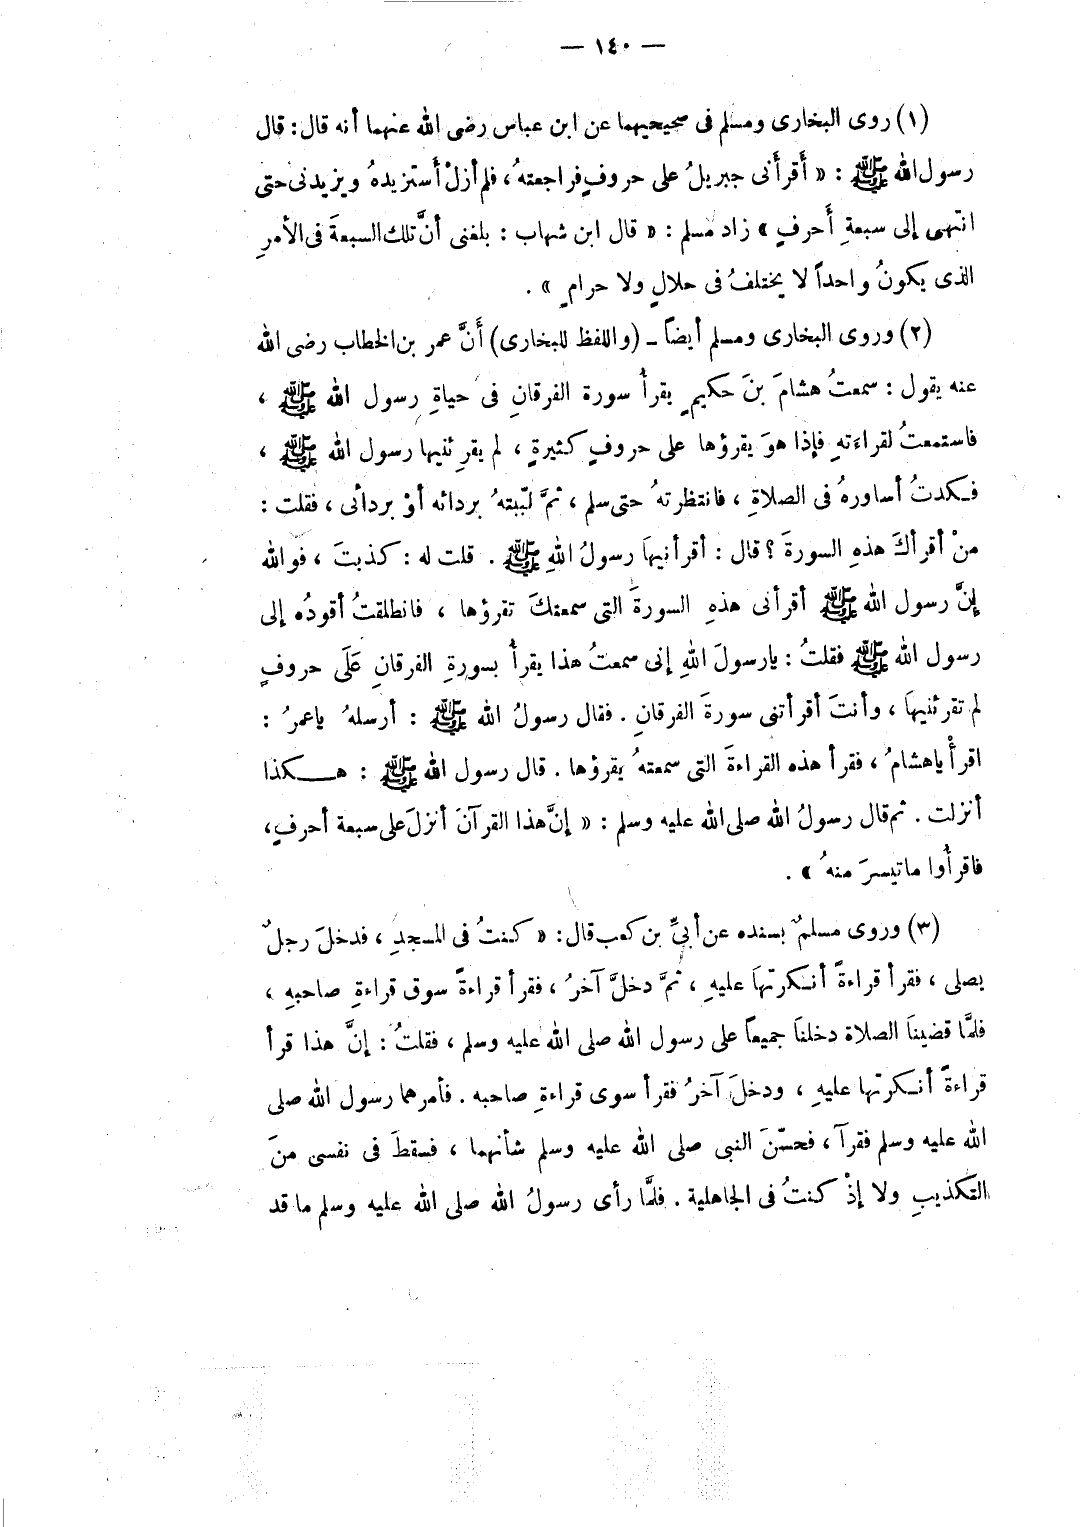 — ١٤٠ —
(١) روى البخارى ومسلم فى صحيحيهما عن ابن عباس رضى الله عنهما أنه قال: قال
رسول الله ﷺ : « أَقرأَنى جبريلُ على حروفٍ فراجعتهُ ، فلم أزلْ أَستزيدهُ ويزيدنى حتى
انتهى إلى سبعةِ أَحرفٍ » زاد مسلم : « قال ابن شهاب : بلغنى أنَّ تلك السبعةَ فى الأمرِ
الذى يكونُ واحداً لا يختلفُ فى حلالٍ ولا حرامٍ » .
(٢) وروى البخارى ومسلم أيضاً ــ (واللفظ للبخارى) أَنَّ عمر بن الخطاب رضى الله
عنه يقول : سمعتُ هشامَ بنَ حكيمٍ يقرأُ سورة الفرقانِ فى حياةِ رسول الله ﷺ ،
فاستمعتُ لقراءتهِ فإذا هوَ يقرؤها على حروفٍ كثيرةٍ ، لم يقرِئنيها رسول الله ﷺ ،
فكدتُ أساورهُ فى الصلاةِ ، فانتظرتهُ حتى سلم ، ثمَّ لبّبتهُ بردائه أوْ بردائى ، فقلت :
منْ أقرأكَ هذهِ السورةَ ؟ قال : أقرأنيهَا رسولُ اللهِ ﷺ . قلت له : كذبتَ ، فوالله
إنَّ رسول الله ﷺ أقرأنى هذهِ السورةَ التى سمعتكَ تقرؤها ، فانطلقتُ أقودُه إلى
رسول الله ﷺ فقلتُ : يارسولَ اللهِ إنى سمعتُ هذا يقرأُ بسورةِ الفرقانِ عَلَى حروفٍ
لم تقرئنيهَا ، وأنتَ أقرأتنى سورةَ الفرقانِ . فقال رسولُ الله ﷺ : أرسلهُ ياعمرُ :
اقرأْ ياهشامُ ، فقرأ هذه القراءةَ التى سمعتهُ يقرؤها . قال رسول الله ﷺ : هـكذا
أنزلت . ثم قال رسولُ الله صلى الله عليه وسلم : « إنَّ هذا القرآنَ أنزلَ على سبعة أحرفٍ،
فاقرأُوا ماتيسرَ منهُ » .
(٣) وروى مسلمٌ بسنده عن أبىِّ بن كعب قال: « كنتُ فى المسجدِ ، فدخلَ رجلٌ
يصلى ، فقرأ قراءةً أنكرتهَا عليهِ ، ثمَّ دخلَ آخرُ ، فقرأ قراءةً سوى قراءةِ صاحبهِ ،
فلمَّا قضينَا الصلاة دخلنَا جميعاً على رسول الله صلى الله عليه وسلم ، فقلتُ : إنَّ هذا قرأ
قراءةً أنكرتها عليهِ ، ودخلَ آخرُ فقرأ سوى قراءةِ صاحبه . فأمرهما رسول الله صلى
الله عليه وسلم فقرآ ، فحسّنَ النبى صلى الله عليه وسلم شأنهما ، فسقطَ فى نفسى منَ
التكذيبِ ولا إذْ كنتُ فى الجاهلية . فلمَّا رأى رسولُ الله صلى الله عليه وسلم ما قد